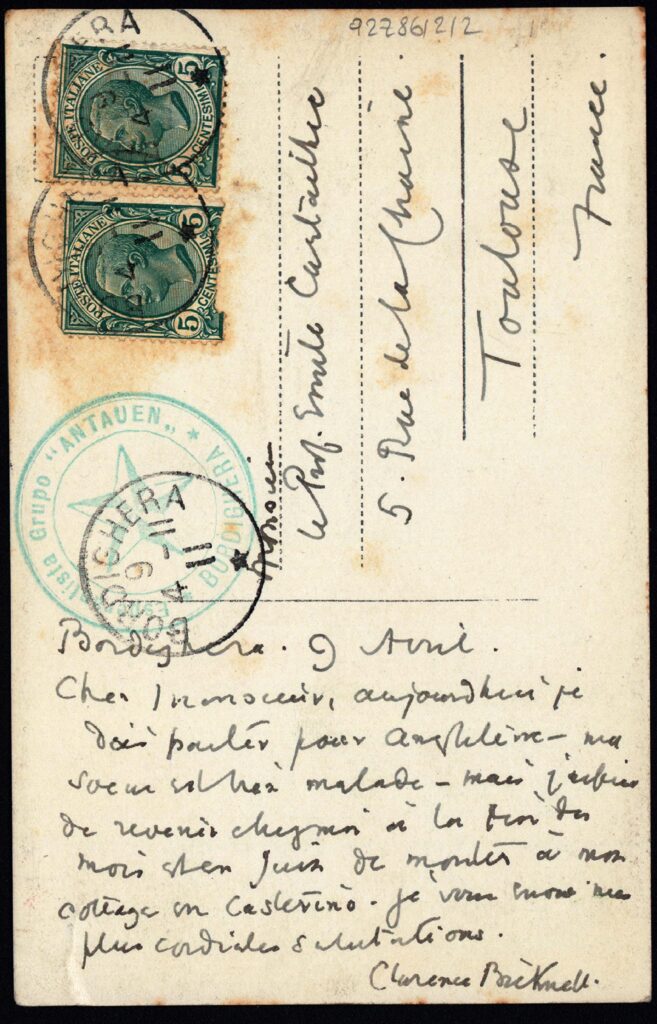 927861212
POSTE ITALIANE
5 CENTESIMI 5
POSTE ITALIANE
5 CENTESIMI 5
Grupo "ANTAUEN" * BORDIGHERA
BORDIGHERA
9 - 11
4 11
Monsieur
le Prof. Emile Cartailhac
5. Rue de la Chaine.
Toulouse
France.
Bordighera. 9 Avril.
Cher Monsieur, aujourdhui je
dois partir pour Angleterre - ma
soeur est très malade - mais j'espère
de revenir chez moi à la fin du
mois et en Juin de monter à mon
cottage en Casterino. Je vous envoie mes
plus cordiales salutations.
Clarence Bicknell.